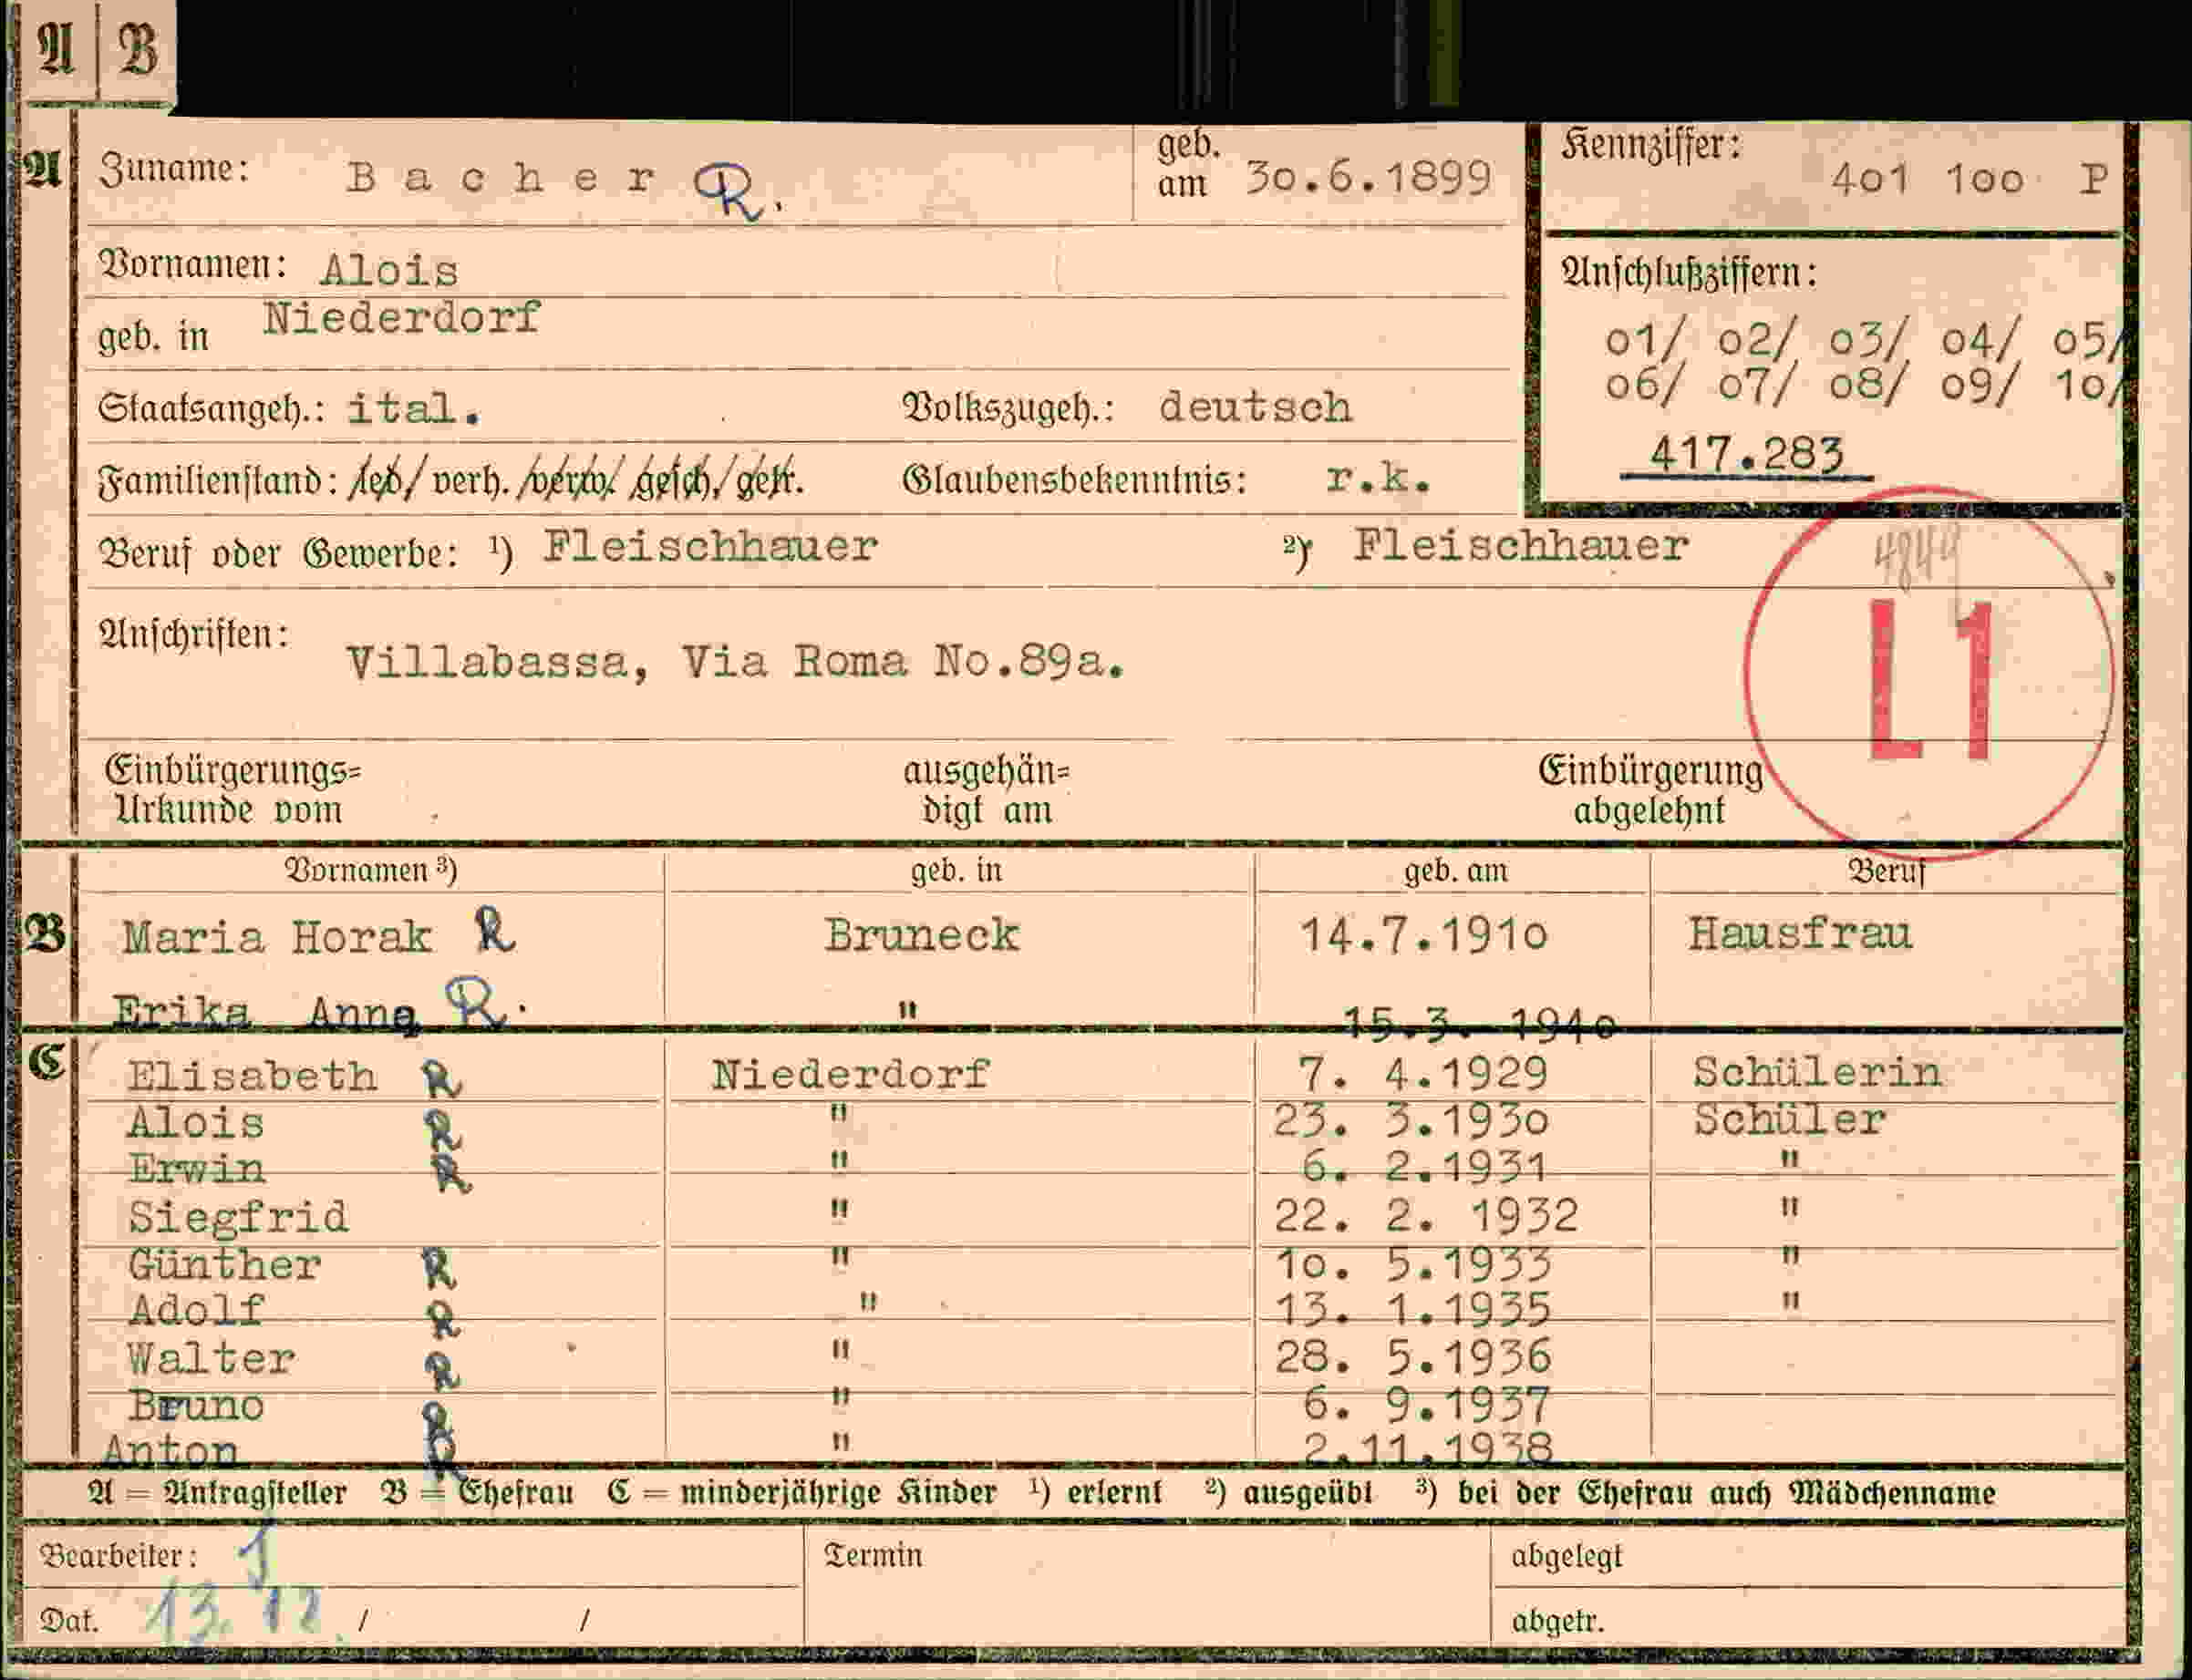 A B
A Zuname: Bacher R. geb. am 30.6.1899 Kennziffer: 401 100 P
Vornamen: Alois
geb. in Niederdorf
Anschlußziffern:
01/ 02/ 03/ 04/ 05/
06/ 07/ 08/ 09/ 10/
417.283
Staatsangeh.: ital. Volkszugeh.: deutsch
Familienstand: led/ verh. /verw/ gesch/ getr. Glaubensbekenntnis: r.k.
Beruf oder Gewerbe: ¹) Fleischhauer ²) Fleischhauer
4849
L1
Anschriften: Villabassa, Via Roma No.89a.
Einbürgerungs= ausgehän= Einbürgerung
Urkunde vom digt am abgelehnt
Vornamen ³) geb. in geb. am Beruf
B Maria Horak R Bruneck 14.7.1910 Hausfrau
Erika Anna R. " 15.3. 1940
C Elisabeth R Niederdorf 7. 4.1929 Schülerin
Alois R " 23. 3.1930 Schüler
Erwin R " 6. 2.1931 "
Siegfrid " 22. 2. 1932 "
Günther R " 10. 5.1933 "
Adolf R " 13. 1.1935 "
Walter R " 28. 5.1936
Bruno R " 6. 9.1937
Anton R " 2.11.1938
A = Antragsteller B = Ehefrau C = minderjährige Kinder ¹) erlernt ²) ausgeübt ³) bei der Ehefrau auch Mädchenname
Bearbeiter: Termin abgelegt
Dat. 13. 12. / / abgetr.